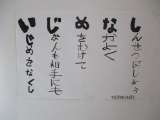 しんせつにしよう
なかよく
めをむけて
じぶんも相手にも
いじめをなくし